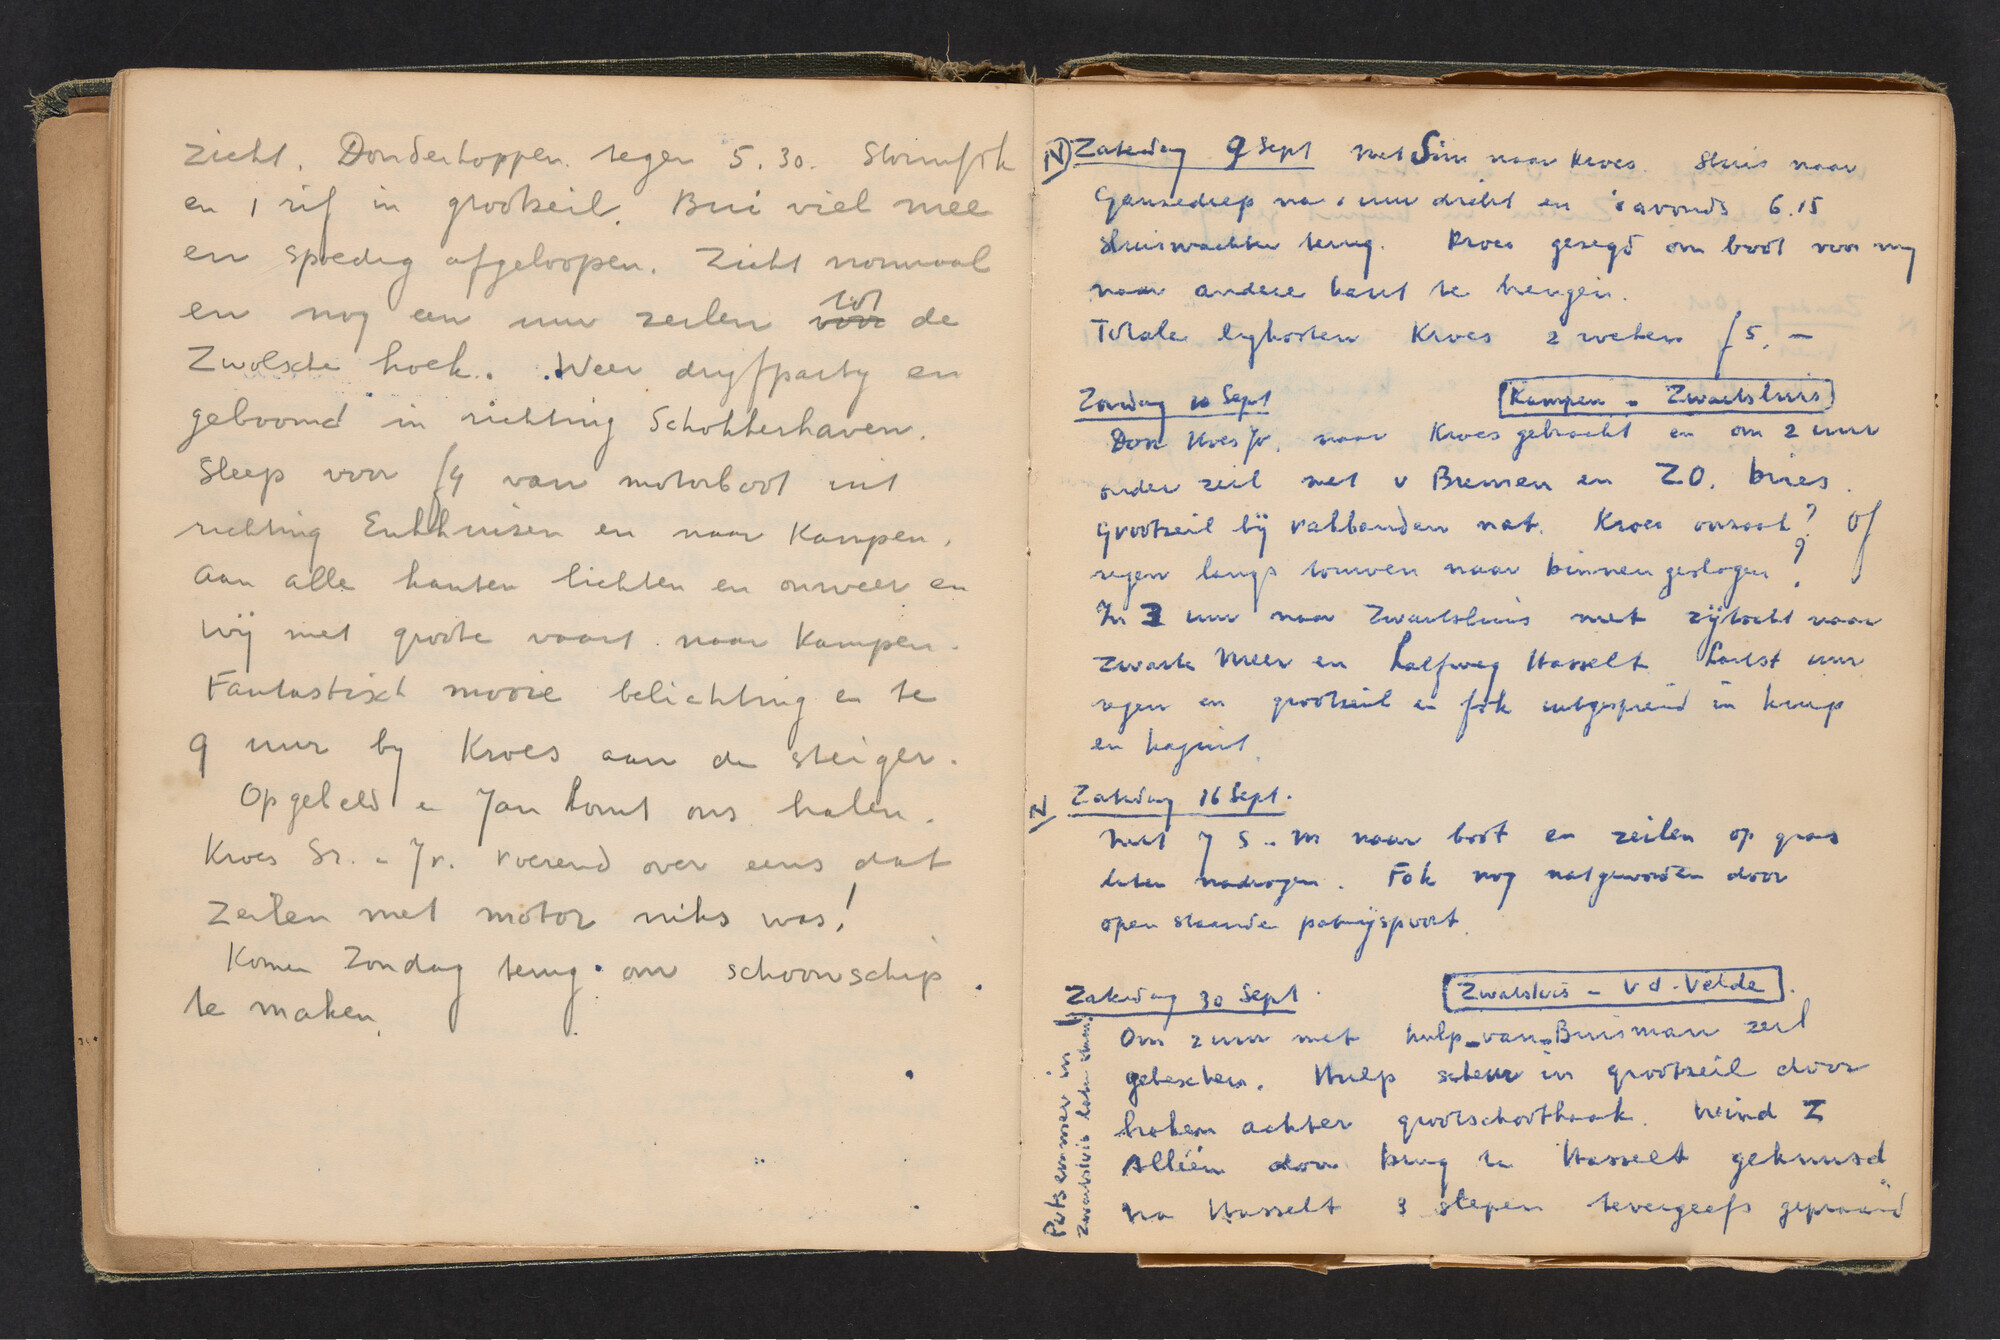 zicht. Donderkoppen. tegen 5.30. Stormfok
en 1 rif in grootzeil. Bui viel mee
en spoedig afgeloopen. Zicht normaal
en nog een uur zeilen voor tot de
Zwolsche hoek. Weer dryfparty en
geboomd in richting Schokkerhaven.
Sleep voor f4 van motorboot uit
richting Enkhuizen en naar Kampen.
Aan alle kanten lichten en onweer en
wij met groote vaart naar Kampen.
Fantastisch mooie belichting en te
9 uur by Kroes aan de steiger.
Opgebeld en Jan komt ons halen.
Kroes Sr. en Jr. roerend over eens dat
zeilen met motor niks was!
Komen Zondag terug om schoonschip
te maken.
N Zaterdag 9 Sept met Sim naar Kroes. Sluis naar
Ganzediep na 1 uur dicht en 's avonds 6.15
sluiswachter terug. Kroes gezegd om boot voor my
naar andere kant te brengen.
Totale lygkosten Kroes 2 weken f5.-
Zondag 10 Sept Kampen - Zwartsluis
Door Kroes Jr. naar Kroes gebracht en om 2 uur
onder zeil met v Bremen en Z.O. bries.
Grootzeil bij rakbanden nat. Kroes oorzaak? Of
regen langs touwen naar binnen geslagen?
In 3 uur naar Zwartsluis met zijtocht naar
Zwarte Meer en halfweg Hasselt. Laatst uur
regen en grootzeil en fok uitgespreid in kuip
en kajuit.
N Zaterdag 16 Sept.
Met J S. - M naar boot en zeilen op gras
laten nadrogen. Fok nog natgeworden door
open staande patrijspoort.
Zaterdag 30 Sept. Zwartsluis - v d. Velde.
Om 2 uur met hulp van Buisman zeil
gehesschen. Hulp scheur in grootzeil door
haken achter grootschoothaak. Wind Z
Alléén door brug te Hasselt gekruisd
Na Hasselt 3 slepen tevergeefs gepraaid
Putsemmer in
Zwartsluis laten staan.